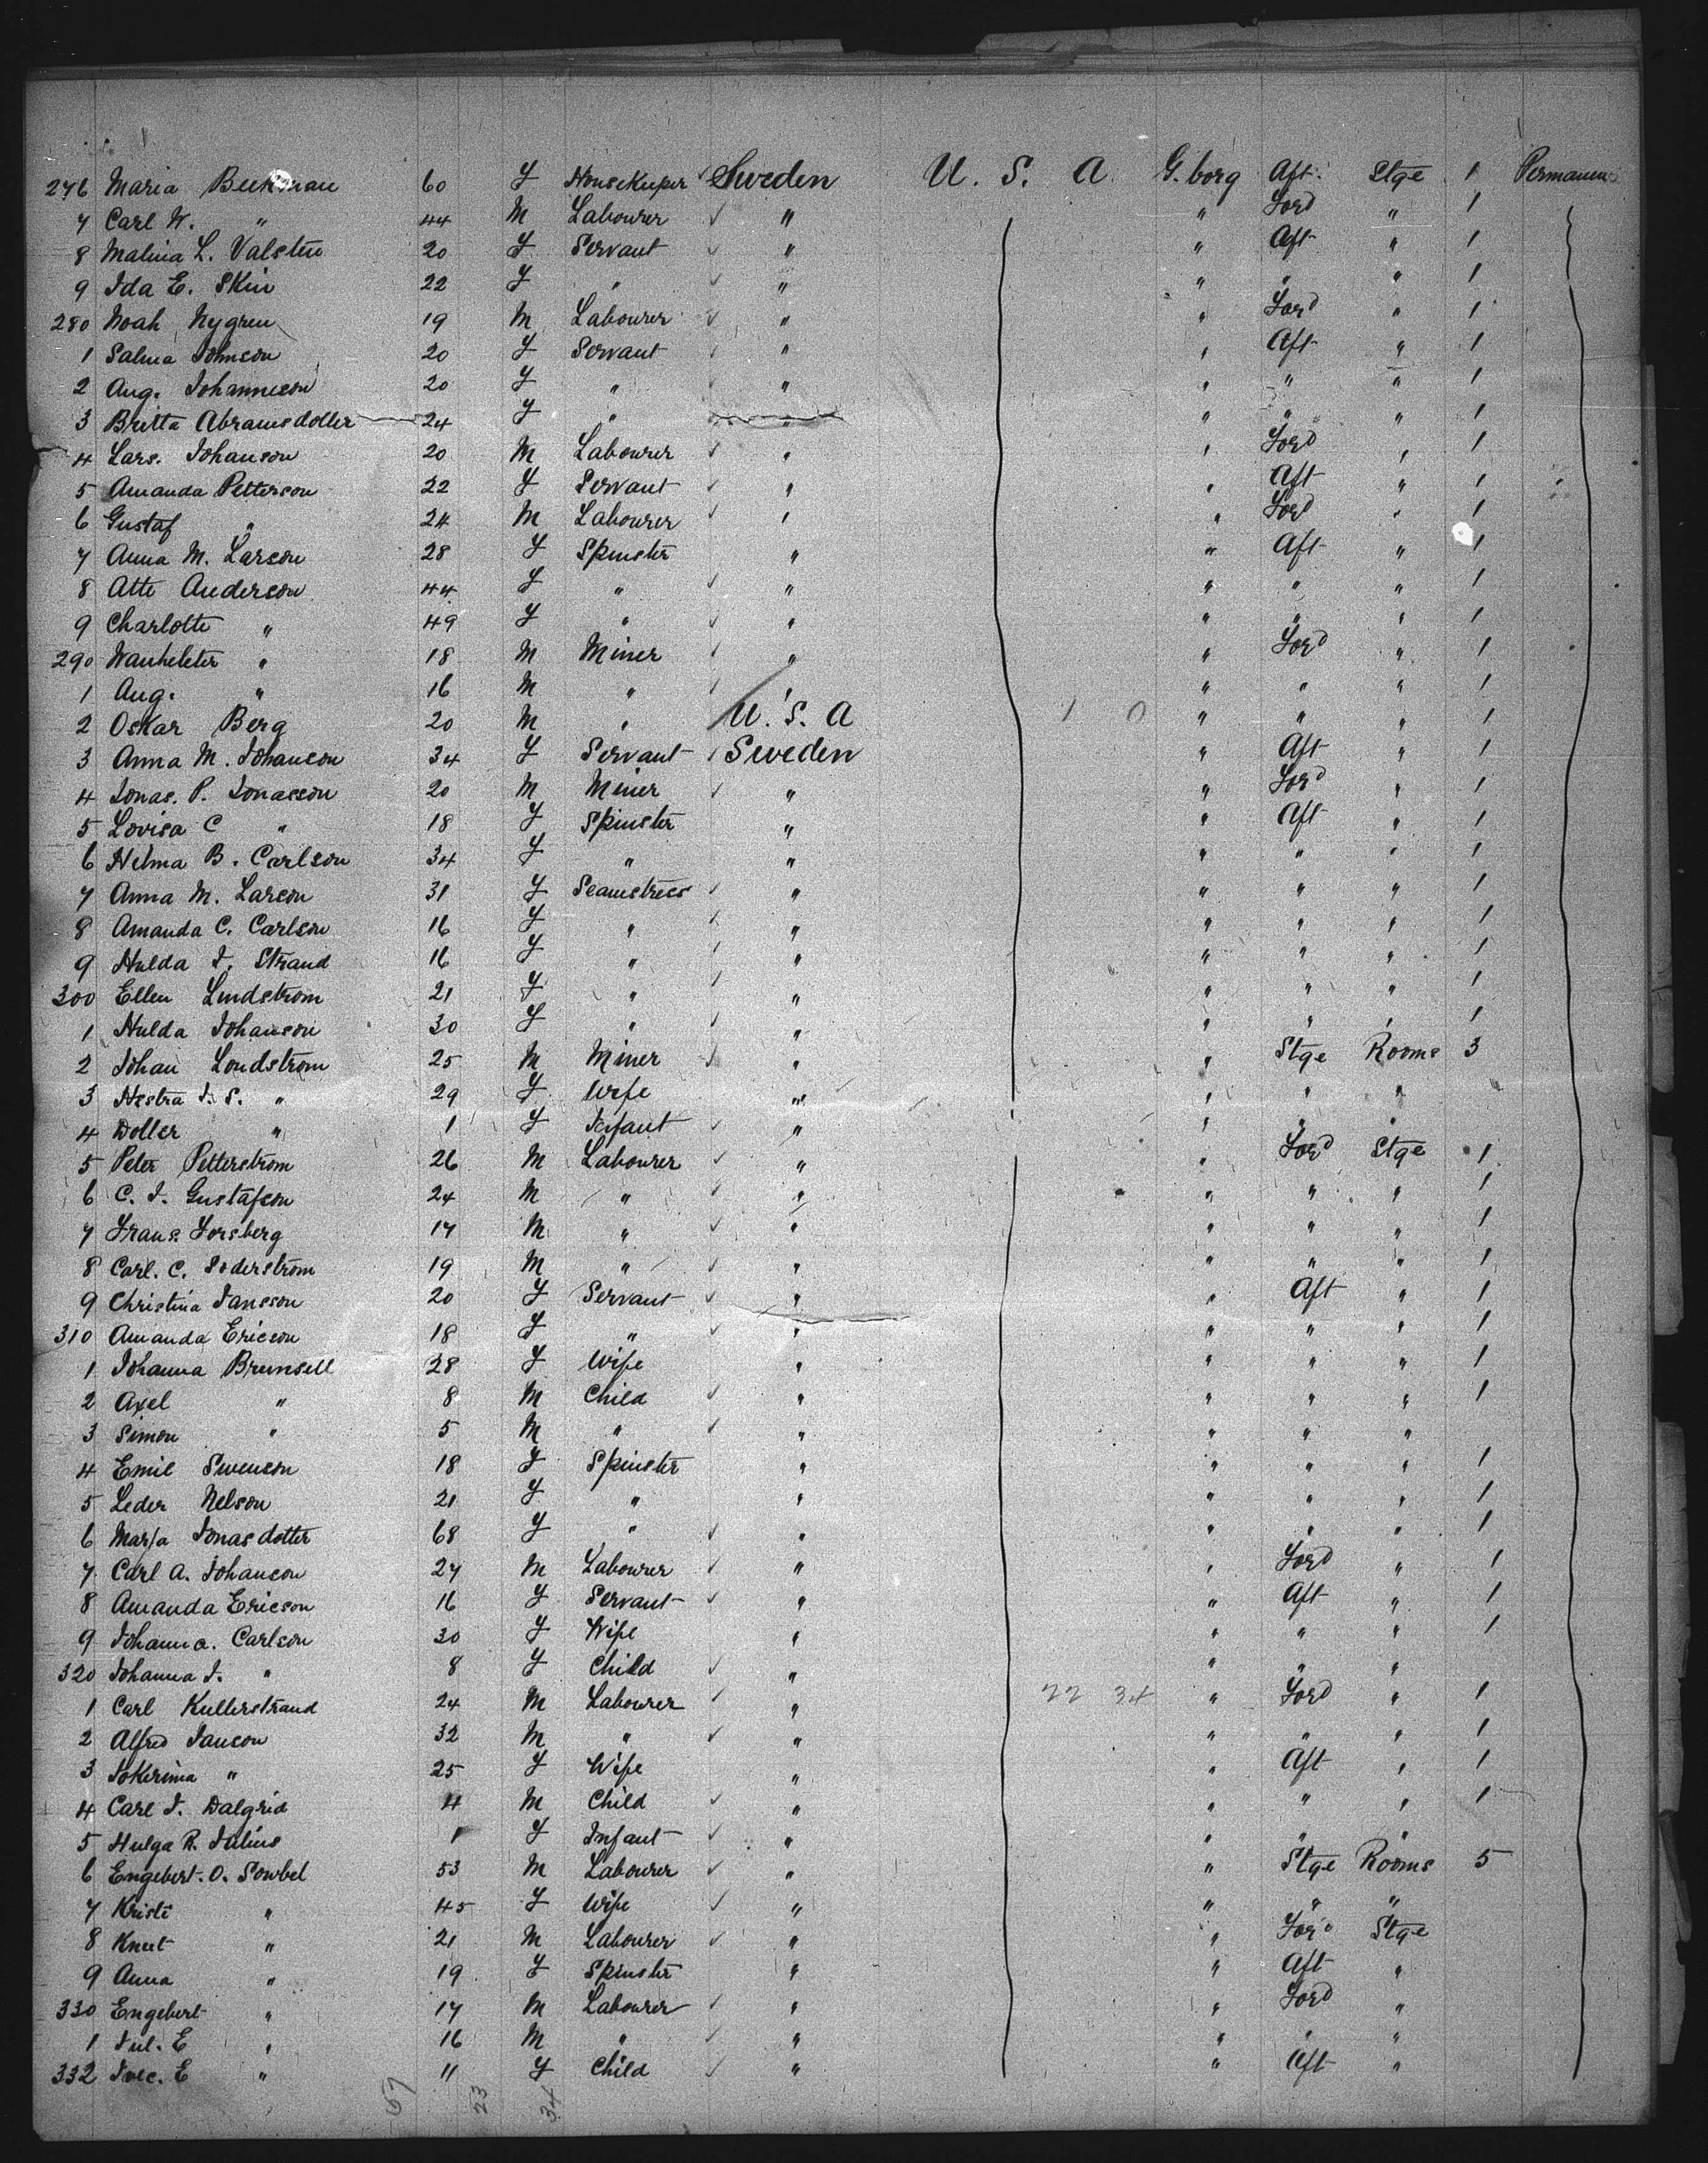 276 Maria Beckman 60 F Housekeeper Sweden U. S. A G. borg Aft Stge 1 Permanen
7 Carl W. " 44 M Labourer ✓ " " Ford " 1
8 Malina L. Valsten 20 F Servant ✓ " " Aft " 1
9 Ida E. Skin 22 F " ✓ " " " " 1
280 Noah Nygren 19 M Labourer ✓ " " Ford " 1
1 Salma Johnson 20 F Servant ✓ " " Aft " 1
2 Aug. Johanneson 20 F " ✓ " " " " 1
3 Britta Abramsdotter 24 F " " " " " 1
4 Lars. Johanson 20 M Labourer ✓ " " Ford " 1
5 Amanda Petterson 22 F Servant ✓ " " Aft " 1
6 Gustaf " 24 M Labourer ✓ " " Ford " 1
7 Anna M. Larson 28 F Spinster " " Aft " 1
8 Atte Anderson 44 F " ✓ " " " " 1
9 Charlotte " 49 F " ✓ " " " " 1
290 " 18 M Miner ✓ " " Ford " 1
1 Aug. " 16 M " ✓ " " " " 1
2 Oskar Berg 20 M " U. S. A 1 0 " " " 1
3 Anna M. Johanson 34 F Servant ✓ Sweden " Aft " 1
4 Jonas. P. Jonasson 20 M Miner ✓ " " Ford " 1
5 Lovisa C " 18 F Spinster " " Aft " 1
6 Helma B. Carlson 34 F " " " " " 1
7 Anna M. Larson 31 F Seamstress ✓ " " " " 1
8 Amanda C. Carlson 16 F " ✓ " " " " 1
9 Hulda J. Strand 16 F " ✓ " " " " 1
300 Ellen Lindstrom 21 F " ✓ " " " " 1
1 Hulda Johanson 30 F " ✓ " " " " 1
2 Johan Londstrom 25 M Miner ✓ " " Stge Rooms 3
3 Hestra J. S. " 29 F Wife " " " "
4 Dotter " 1 F Infant " " " "
5 Peter Petterstrom 26 M Labourer ✓ " " Ford Stge 1
6 C. J. Gustafson 24 M " ✓ " " " " 1
7 Frans. Forsberg 17 M " ✓ " " " " 1
8 Carl. C. Soderstrom 19 M " ✓ " " " " 1
9 Christina Jansson 20 F Servant ✓ " " Aft " 1
310 Amanda Ericson 18 F " ✓ " " " " 1
1 Johanna Brunsell 28 F Wife " " " " 1
2 Axel " 8 M Child ✓ " " " " 1
3 Simon " 5 M " ✓ " " " "
4 Emil Swenson 18 F Spinster " " " " 1
5 Leder Nelson 21 F " " " " " 1
6 Marja Jonasdotter 68 F " ✓ " " " " 1
7 Carl A. Johanson 27 M Labourer ✓ " " Ford " 1
8 Amanda Ericson 16 F Servant ✓ " " Aft " 1
9 Johanna. Carlson 30 F Wife " " " " 1
320 Johanna J. " 8 F Child ✓ " " " "
1 Carl Kullerstrand 24 M Labourer ✓ " 22 34 " Ford " 1
2 Alfred Janson 32 M " ✓ " " " " 1
3 " 25 F Wife " " Aft " 1
4 Carl J. Dalgrid 4 M Child ✓ " " " " 1
5 Hulga R. Julius 1 F Infant ✓ " " " "
6 Engebert. O. Sowbel 53 M Labourer ✓ " " Stge Rooms 5
7 Kriste " 45 F Wife ✓ " " " "
8 Knut " 21 M Labourer ✓ " " Ford Stge
9 Anna " 19 F Spinster " " Aft "
330 Engebert " 17 M Labourer ✓ " " Ford "
1 Jul. E " 16 M " ✓ " " " "
332 " 11 F Child ✓ " " Aft "
57 23 34